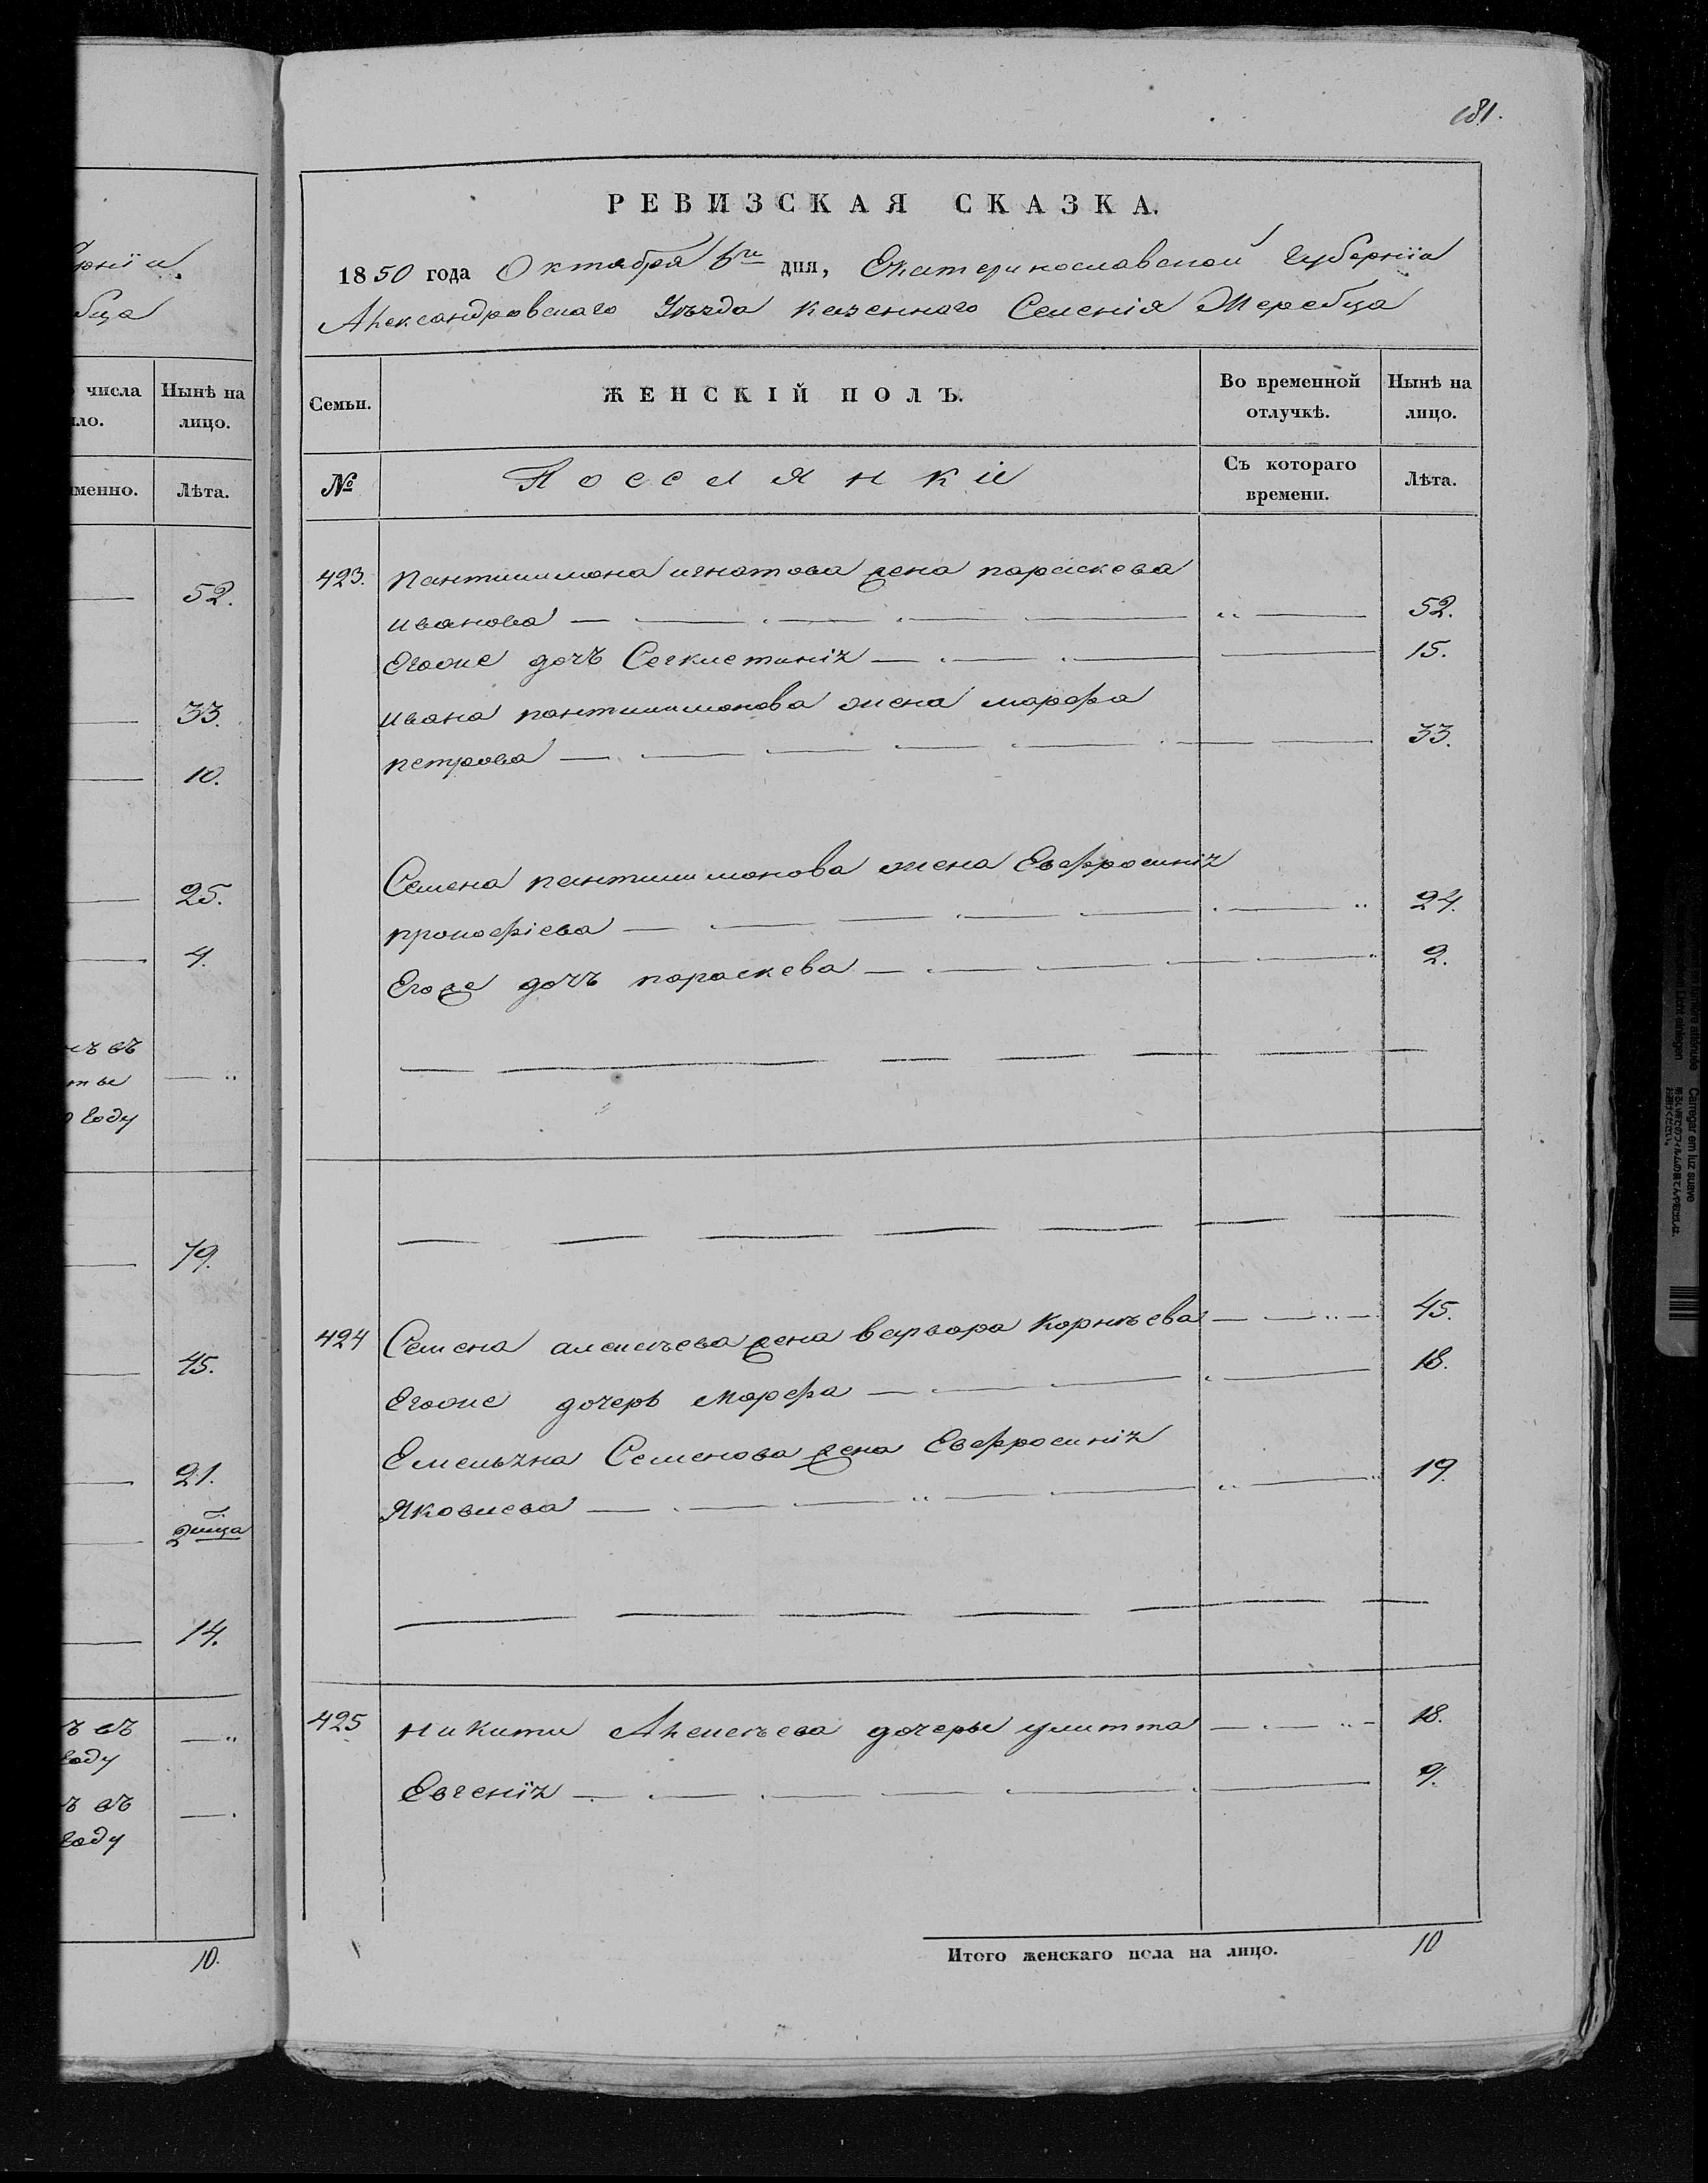 181.
РЕВИЗСКАЯ СКАЗКА.
1850 года Октября 6го дня, Екатеринославской Губернїи
Александровскаго Уѣзда казеннаго Селенія Жеребца
Семьи.
ЖЕНСКІЙ ПОЛЪ.
Во временной отлучкѣ.
Нынѣ на лицо.
№
Поселянкі
Съ котораго времени.
Лѣта.
423. Пантилимона игнатова жена параскева
иванова 52.
Егоже дочъ 15.
ивана пантилимонова жена марфа
петрова 33.
Семена пантилимонова жена Евфросинія
прокофіева 24.
Егоже дочъ параскева 2.
424 Семена алексѣева жена варвара Корнѣева 45.
Егоже дочерь Марфа 18.
Емельяна Семенова жена Евфросинія
Яковлева 19.
425 Никиты Алексѣева дочеры улитта 18.
Евгенїя 9.
Итого женскаго пола на лицо. 10
рнїи
бца
числа
ло.
Нынѣ на
лицо.
менно.
Лѣта.
52.
33.
10.
25.
4.
ъ въ
году
79.
45.
21.
14.
ъ въ
году
ъ въ
году
10.